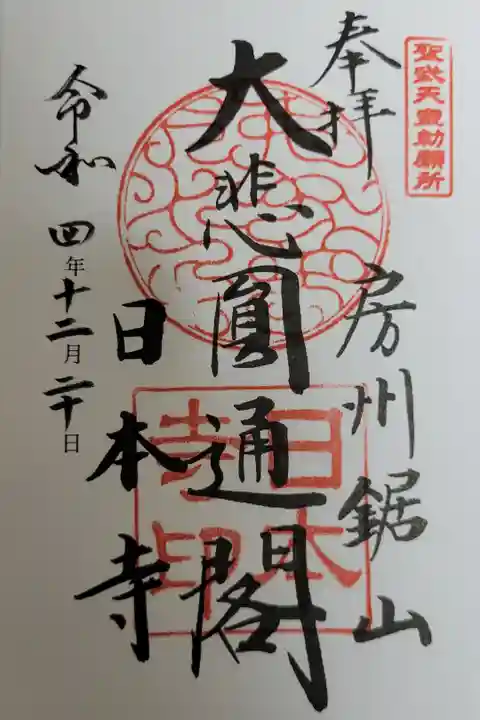 聖武天皇勅願所
奉拝
房州鋸山
大悲圓通閣
日本寺
日本寺印
令和四年十二月二十日